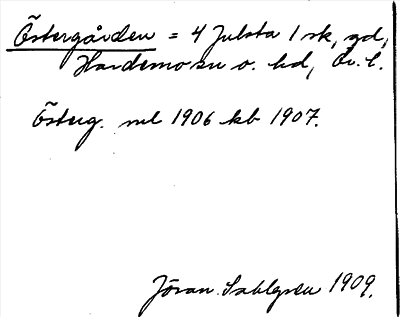 Östergården = 4 Julsta 1 sk, gd,
Hardemo sn o. hd, Ör. l.
Österg. ml 1906 kb 1907.
Jöran Sahlgren 1909.